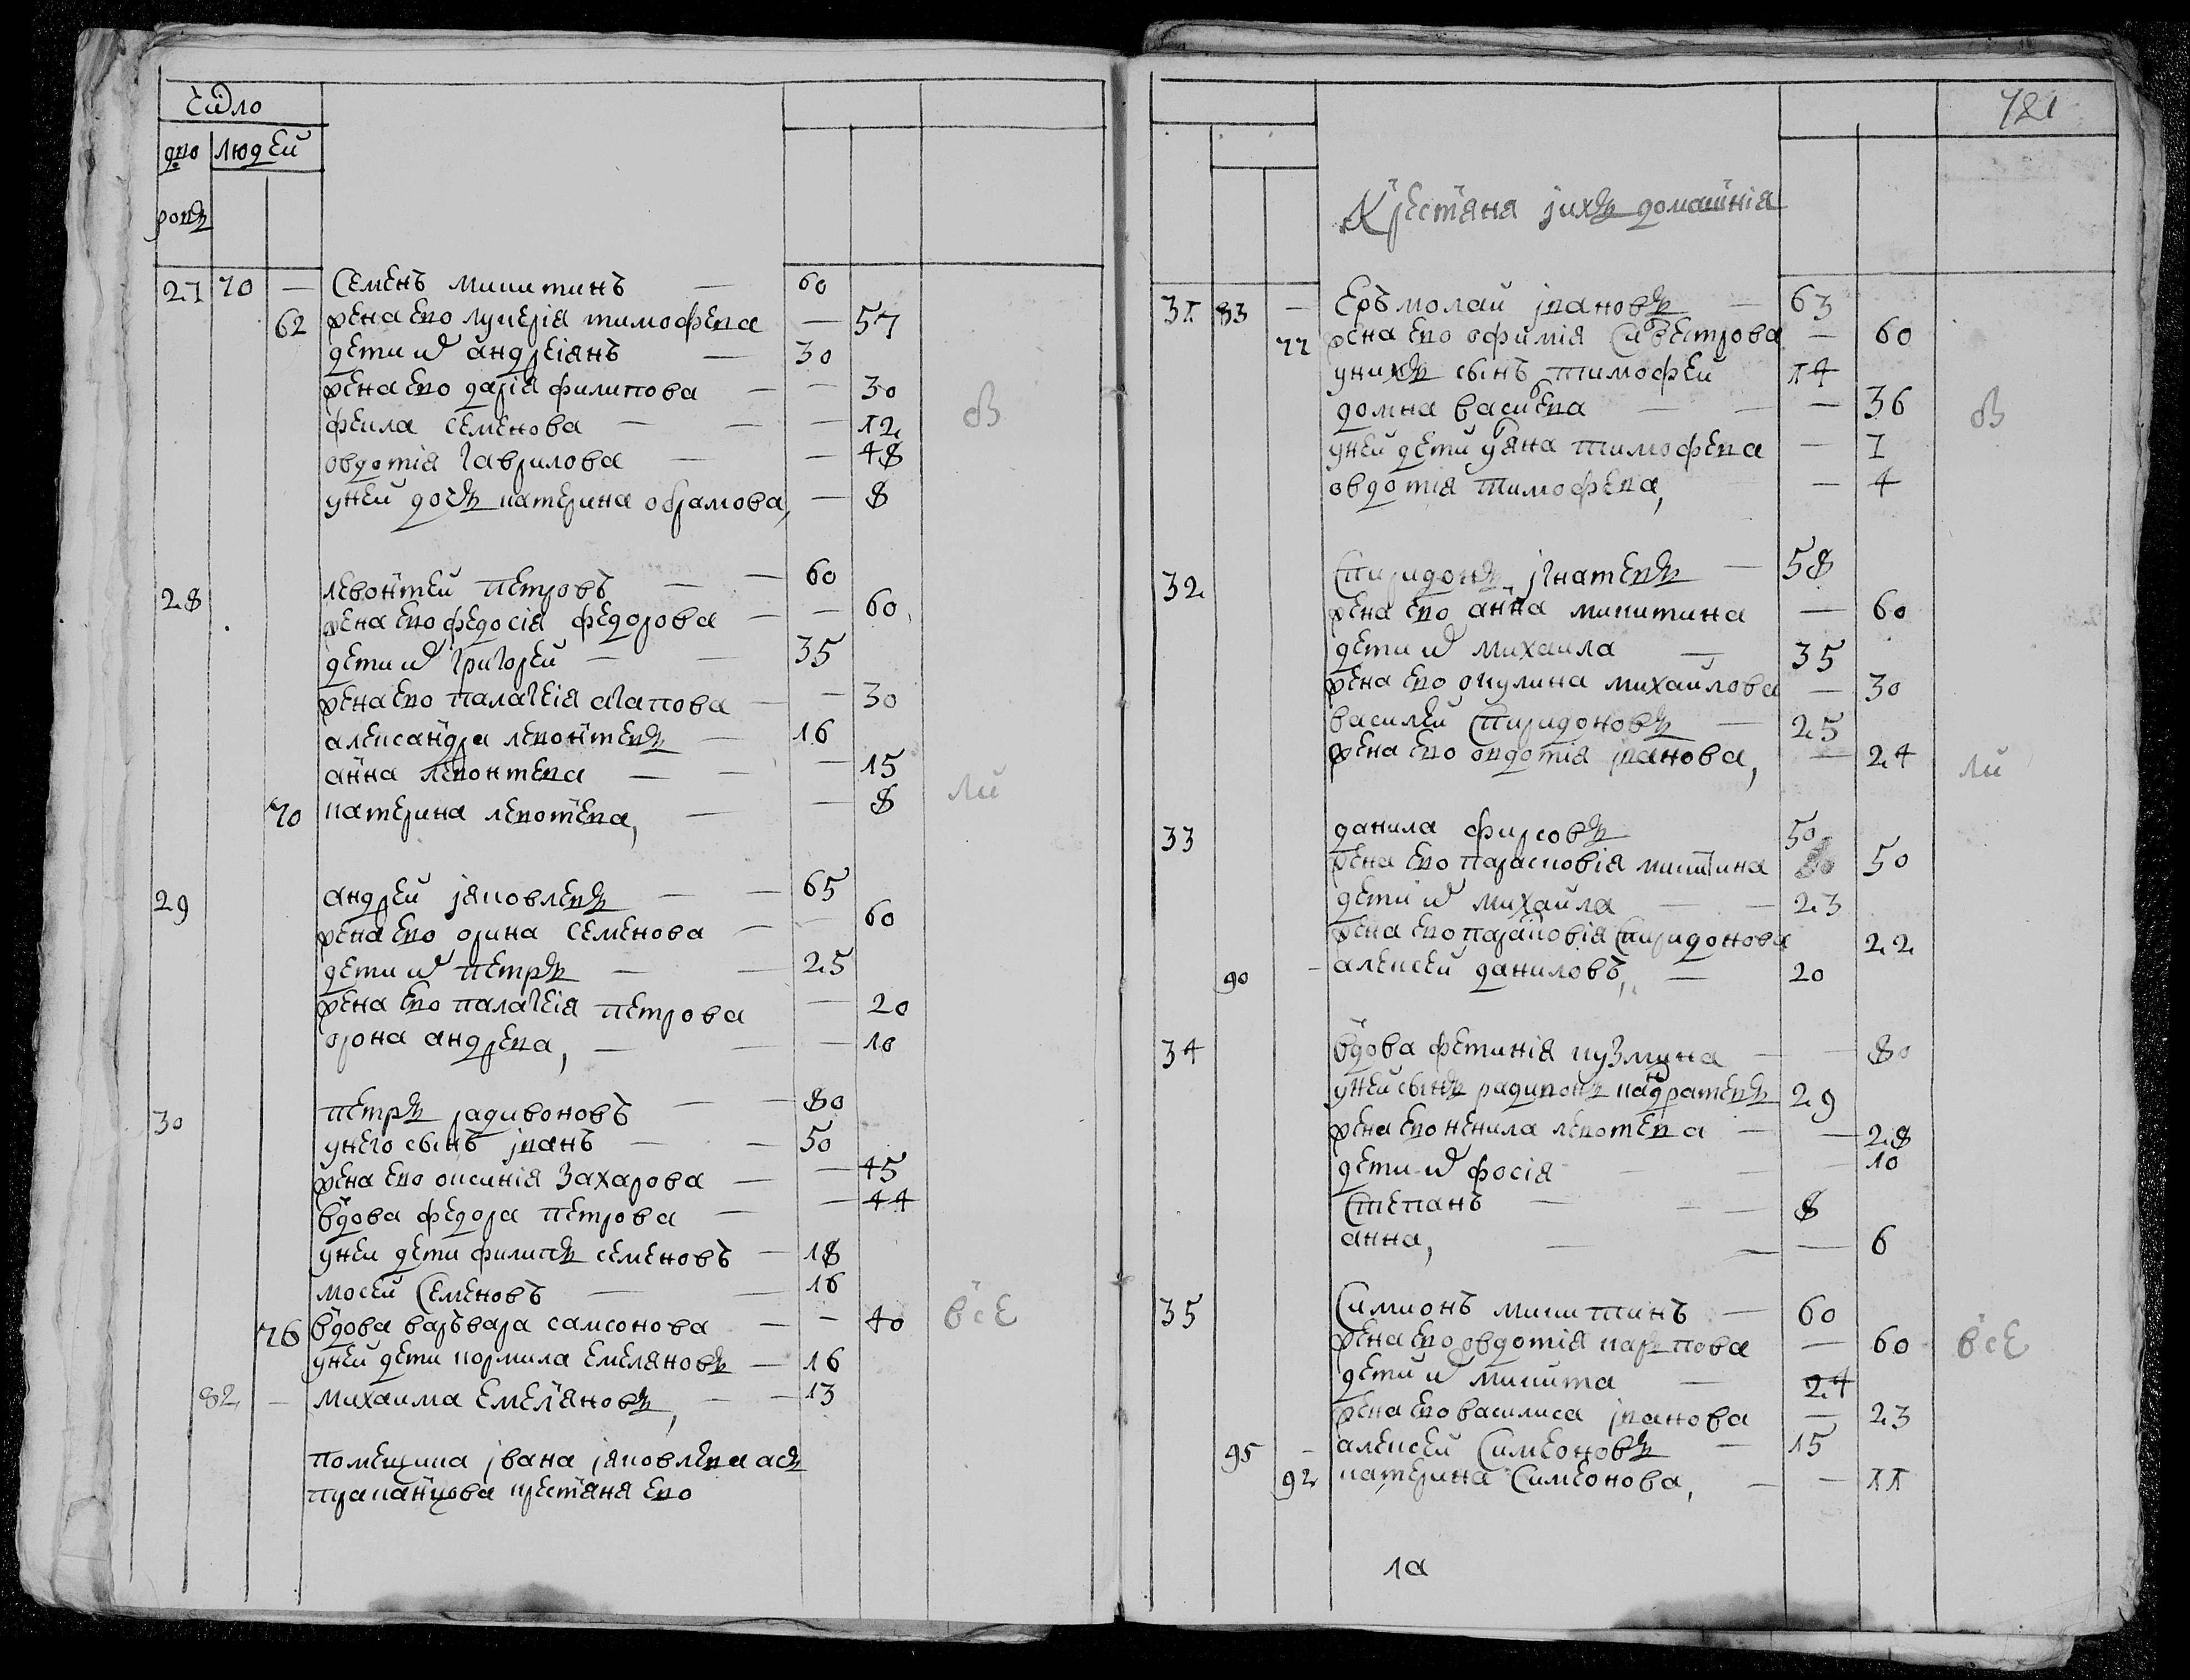 Число
дво людей
ровъ
27 70 — Семенъ микитинъ — 60
62 жена ево лукерія тимофева — 57
дети их андреіянъ — 30
жена ево дарія филипова — — 30
фекла семенова — — — 12
овдотія гаврилова — — 48
уней дочь катерина обрамова, — 8
об
28 левонтей петровъ — — 60
жена ево федосія федорова — — 60
дети их григорей — — 35
жена ево палагеія агапова — — 30
александра левонтевъ — 16
анна левонтева — — — 15
70 катерина левотева, — — 8
ли
29 андрей яковлевъ — — 65
жена ево орина семенова — — 60
дети их петръ — — 25
жена ево палагеія петрова — 20
орона андрева, — — — 10
30 петръ радивоновъ — — 80
унего сынъ іванъ — — 50
жена ево оксинія захарова — — 45
вдова федора петрова — — 44
уней дети филипъ семеновъ — 18
мосей семеновъ — — 16
76 вдова варъвара самсонова — — 40
все
уней дети кормила емеляновъ — 16
82 — михаила емеляновъ, — — 13
помещика івана яковлева
крестяня ево
721
Крестяня іихъ домашнія
31 83 — Еръмолаи івановъ — 63
77 жена ево офимія Сивестрова — 60
унихъ сынъ тимофеи 14
домна васильева — — — 36
об
уней дети уляна тимофева — 1
овдотія тимофева, — 4
32 Спиридонъ, ігнатевъ — 58
жена ево анна микитина — 60
дети их михаила — 35
жена ево окулина михаилова — 30
василей Спиридоновъ — 25
жена ево овдотія іванова, — 24
ли
33 данила фирсовъ 50
жена ево парасковія микитина 50
дети их михаила — — 23
жена ево парасковія Спиридонова 22
90 — алексей даниловъ, — 20
34 вдова фетинія кузмина — — 80
уней сынъ радивонъ кандратевъ 29
жена ево ненила левотева — — 28
дети их фосія — — 10
Степанъ — — — 8
анна, — — — 6
35 Симионъ микитинъ — 60
жена ево овдотія карпова — 60
все
дети их микита — 24
жена ево василиса іванова — 23
95 — алексеи Симеоновъ — 15
92 катерина Симеонова, — — 11